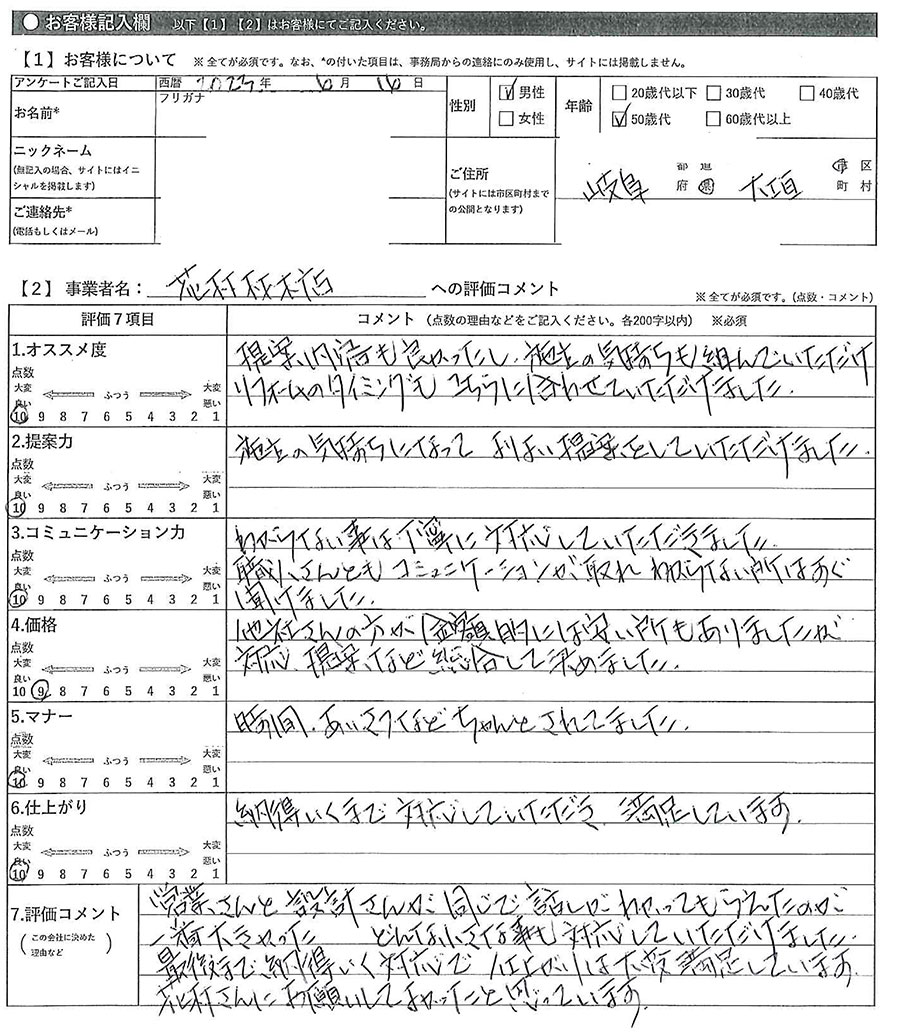 ● お客様記入欄 以下【1】【2】はお客様にてご記入ください。
【1】お客様について ※ 全てが必須です。なお、*の付いた項目は、事務局からの連絡にのみ使用し、サイトには掲載しません。
アンケートご記入日 西暦 2023年 6月 16日
お名前* フリガナ
性別 ☑男性 □女性
年齢 □20歳代以下 □30歳代 □40歳代
☑50歳代 □60歳代以上
ニックネーム
(無記入の場合、サイトにはイニ
シャルを掲載します)
ご連絡先*
(電話もしくはメール)
ご住所
(サイトには市区町村まで
の公開となります)
岐阜 都道府県 大垣 市区町村
【2】事業者名: 花村材木店 への評価コメント
※ 全てが必須です。(点数・コメント)
評価7項目 コメント (点数の理由などをご記入ください。各200字以内) ※必須
1.オススメ度
点数
大変良い ふつう 大変悪い
10 9 8 7 6 5 4 3 2 1
提案、内容も良かったし、施主の気持ちも組んでいただけ
リフォームのタイミングも こちらに合わせていただけました.
2.提案力
点数
大変良い ふつう 大変悪い
10 9 8 7 6 5 4 3 2 1
施主の気持ちになって よりよい提案をしていただけました.
3.コミュニケーション力
点数
大変良い ふつう 大変悪い
10 9 8 7 6 5 4 3 2 1
わからない事は丁寧に対応していただきました.
職人さんともコミュニケーションが取れ わからない所はすぐ
聞けました.
4.価格
点数
大変良い ふつう 大変悪い
10 9 8 7 6 5 4 3 2 1
他社さんの方が金額的には安い所もありましたが
対応、提案など総合して決めました.
5.マナー
点数
大変良い ふつう 大変悪い
10 9 8 7 6 5 4 3 2 1
時間、あいさつなどちゃんとされてました.
6.仕上がり
点数
大変良い ふつう 大変悪い
10 9 8 7 6 5 4 3 2 1
納得いくまで対応していただき、満足しています.
7.評価コメント
(この会社に決めた
理由など)
営業さんと設計さんが同じで話しがわかってもらえたのが
一番大きかった どんな小さな事も対応していただけました.
最後まで納得いく対応で 仕上がりは大変満足しています.
花村さんにお願いしてよかったと思っています.